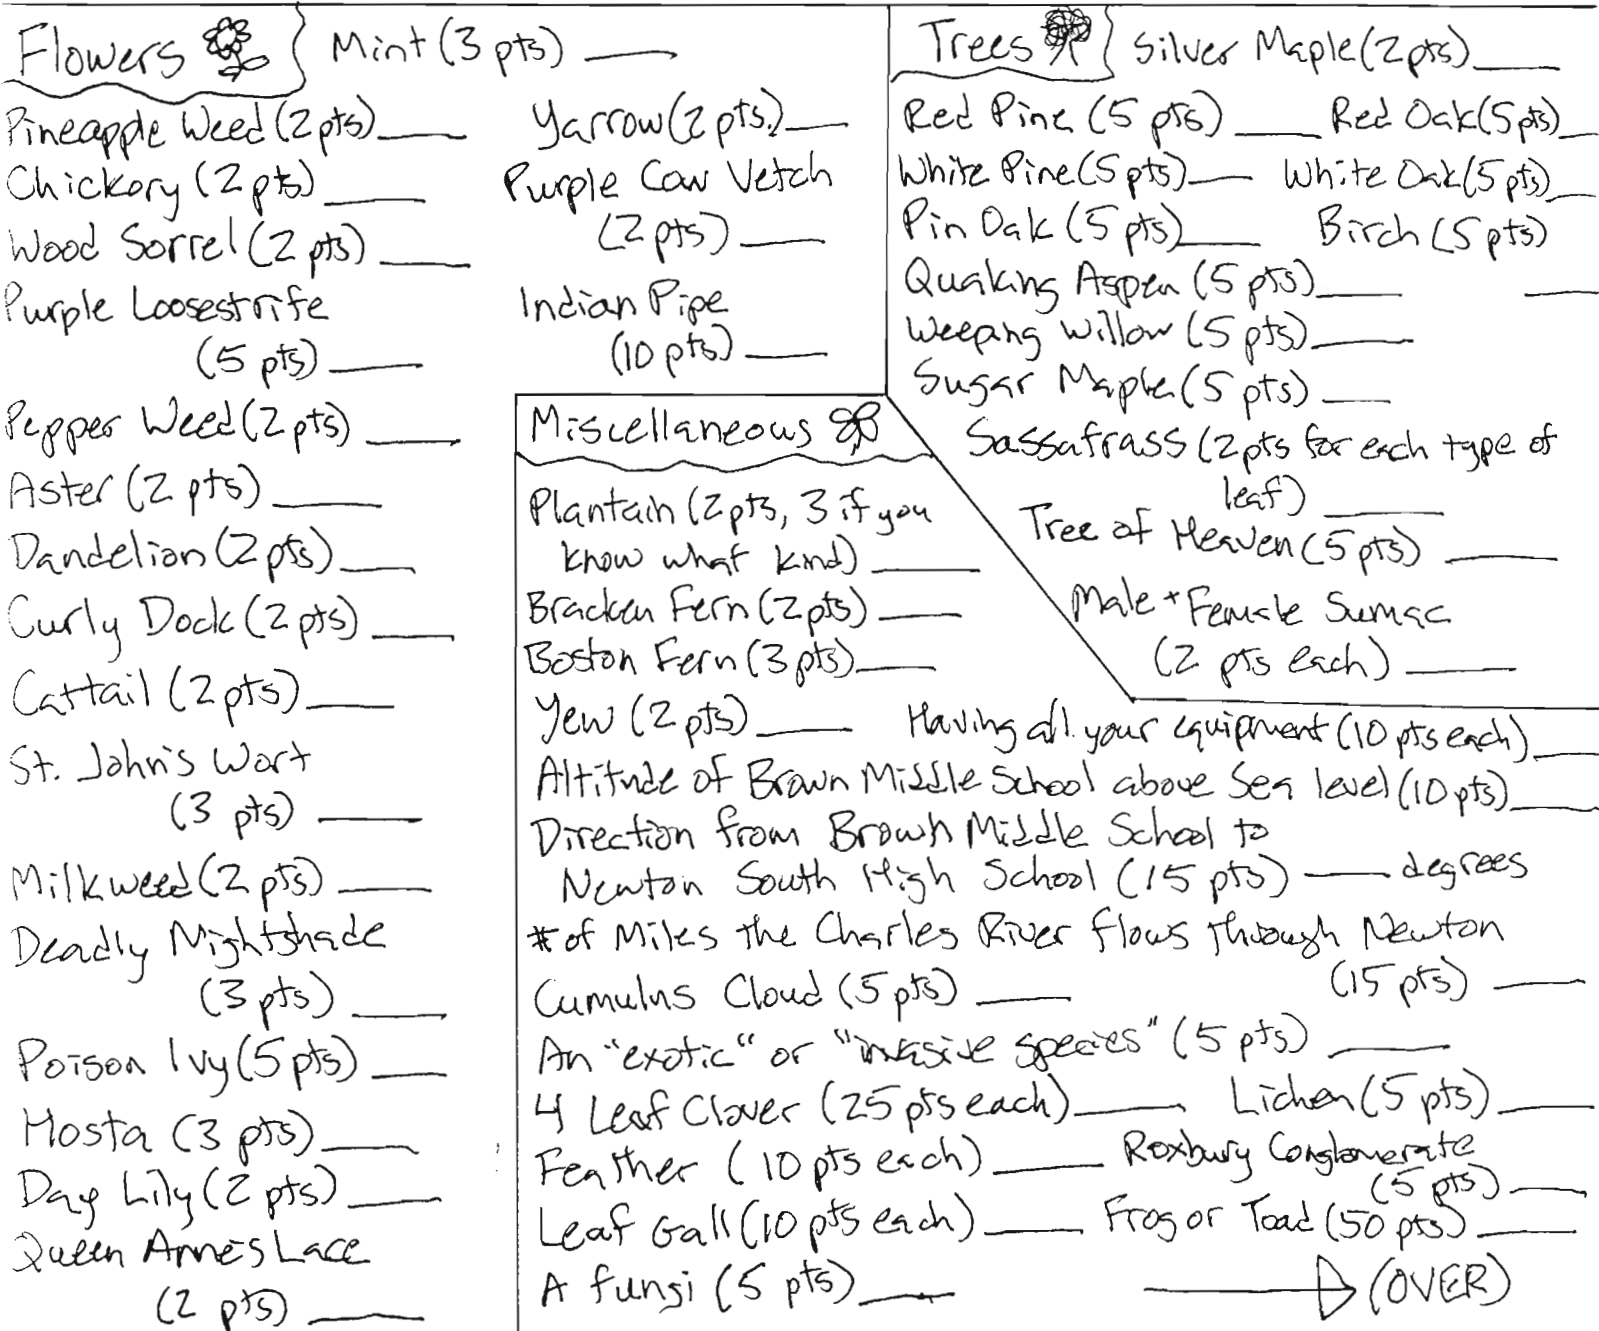 Flowers
Mint (3 pts) ____
Pineapple Weed (2 pts) ____
Chickory (2 pts) ____
Wood Sorrel (2 pts) ____
Purple Loosestrife
(5 pts) ____
Pepper Weed (2 pts) ____
Aster (2 pts) ____
Dandelion (2 pts) ____
Curly Dock (2 pts) ____
Cattail (2 pts) ____
St. John's Wort
(3 pts) ____
Milkweed (2 pts) ____
Deadly Nightshade
(3 pts) ____
Poison Ivy (5 pts) ____
Hosta (3 pts) ____
Day Lily (2 pts) ____
Queen Anne's Lace
(2 pts) ____
Yarrow (2 pts.) ____
Purple Cow Vetch
(2 pts) ____
Indian Pipe
(10 pts) ____
Trees
Silver Maple (2 pts) ____
Red Pine (5 pts) ____ Red Oak (5 pts) ____
White Pine (5 pts) ____ White Oak (5 pts) ____
Pin Oak (5 pts) ____ Birch (5 pts)
Quaking Aspen (5 pts) ____ ____
Weeping Willow (5 pts) ____
Sugar Maple (5 pts) ____
Sassafrass (2 pts for each type of
leaf) ____
Tree of Heaven (5 pts) ____
Male + Female Sumac
(2 pts each) ____
Miscellaneous
Plantain (2 pts, 3 if you
know what kind) ____
Bracken Fern (2 pts) ____
Boston Fern (3 pts) ____
Yew (2 pts) ____ Having all your equipment (10 pts each) ____
Altitude of Brown Middle School above Sea level (10 pts) ____
Direction from Brown Middle School to
Newton South High School (15 pts) ____ degrees
# of Miles the Charles River flows through Newton
(15 pts) ____
Cumulus Cloud (5 pts) ____
An "exotic" or "invasive species" (5 pts) ____
4 Leaf Clover (25 pts each) ____ Lichen (5 pts) ____
Feather (10 pts each) ____ Roxbury Conglomerate
(5 pts) ____
Leaf Gall (10 pts each) ____ Frog or Toad (50 pts) ____
A fungi (5 pts) ____ → (OVER)